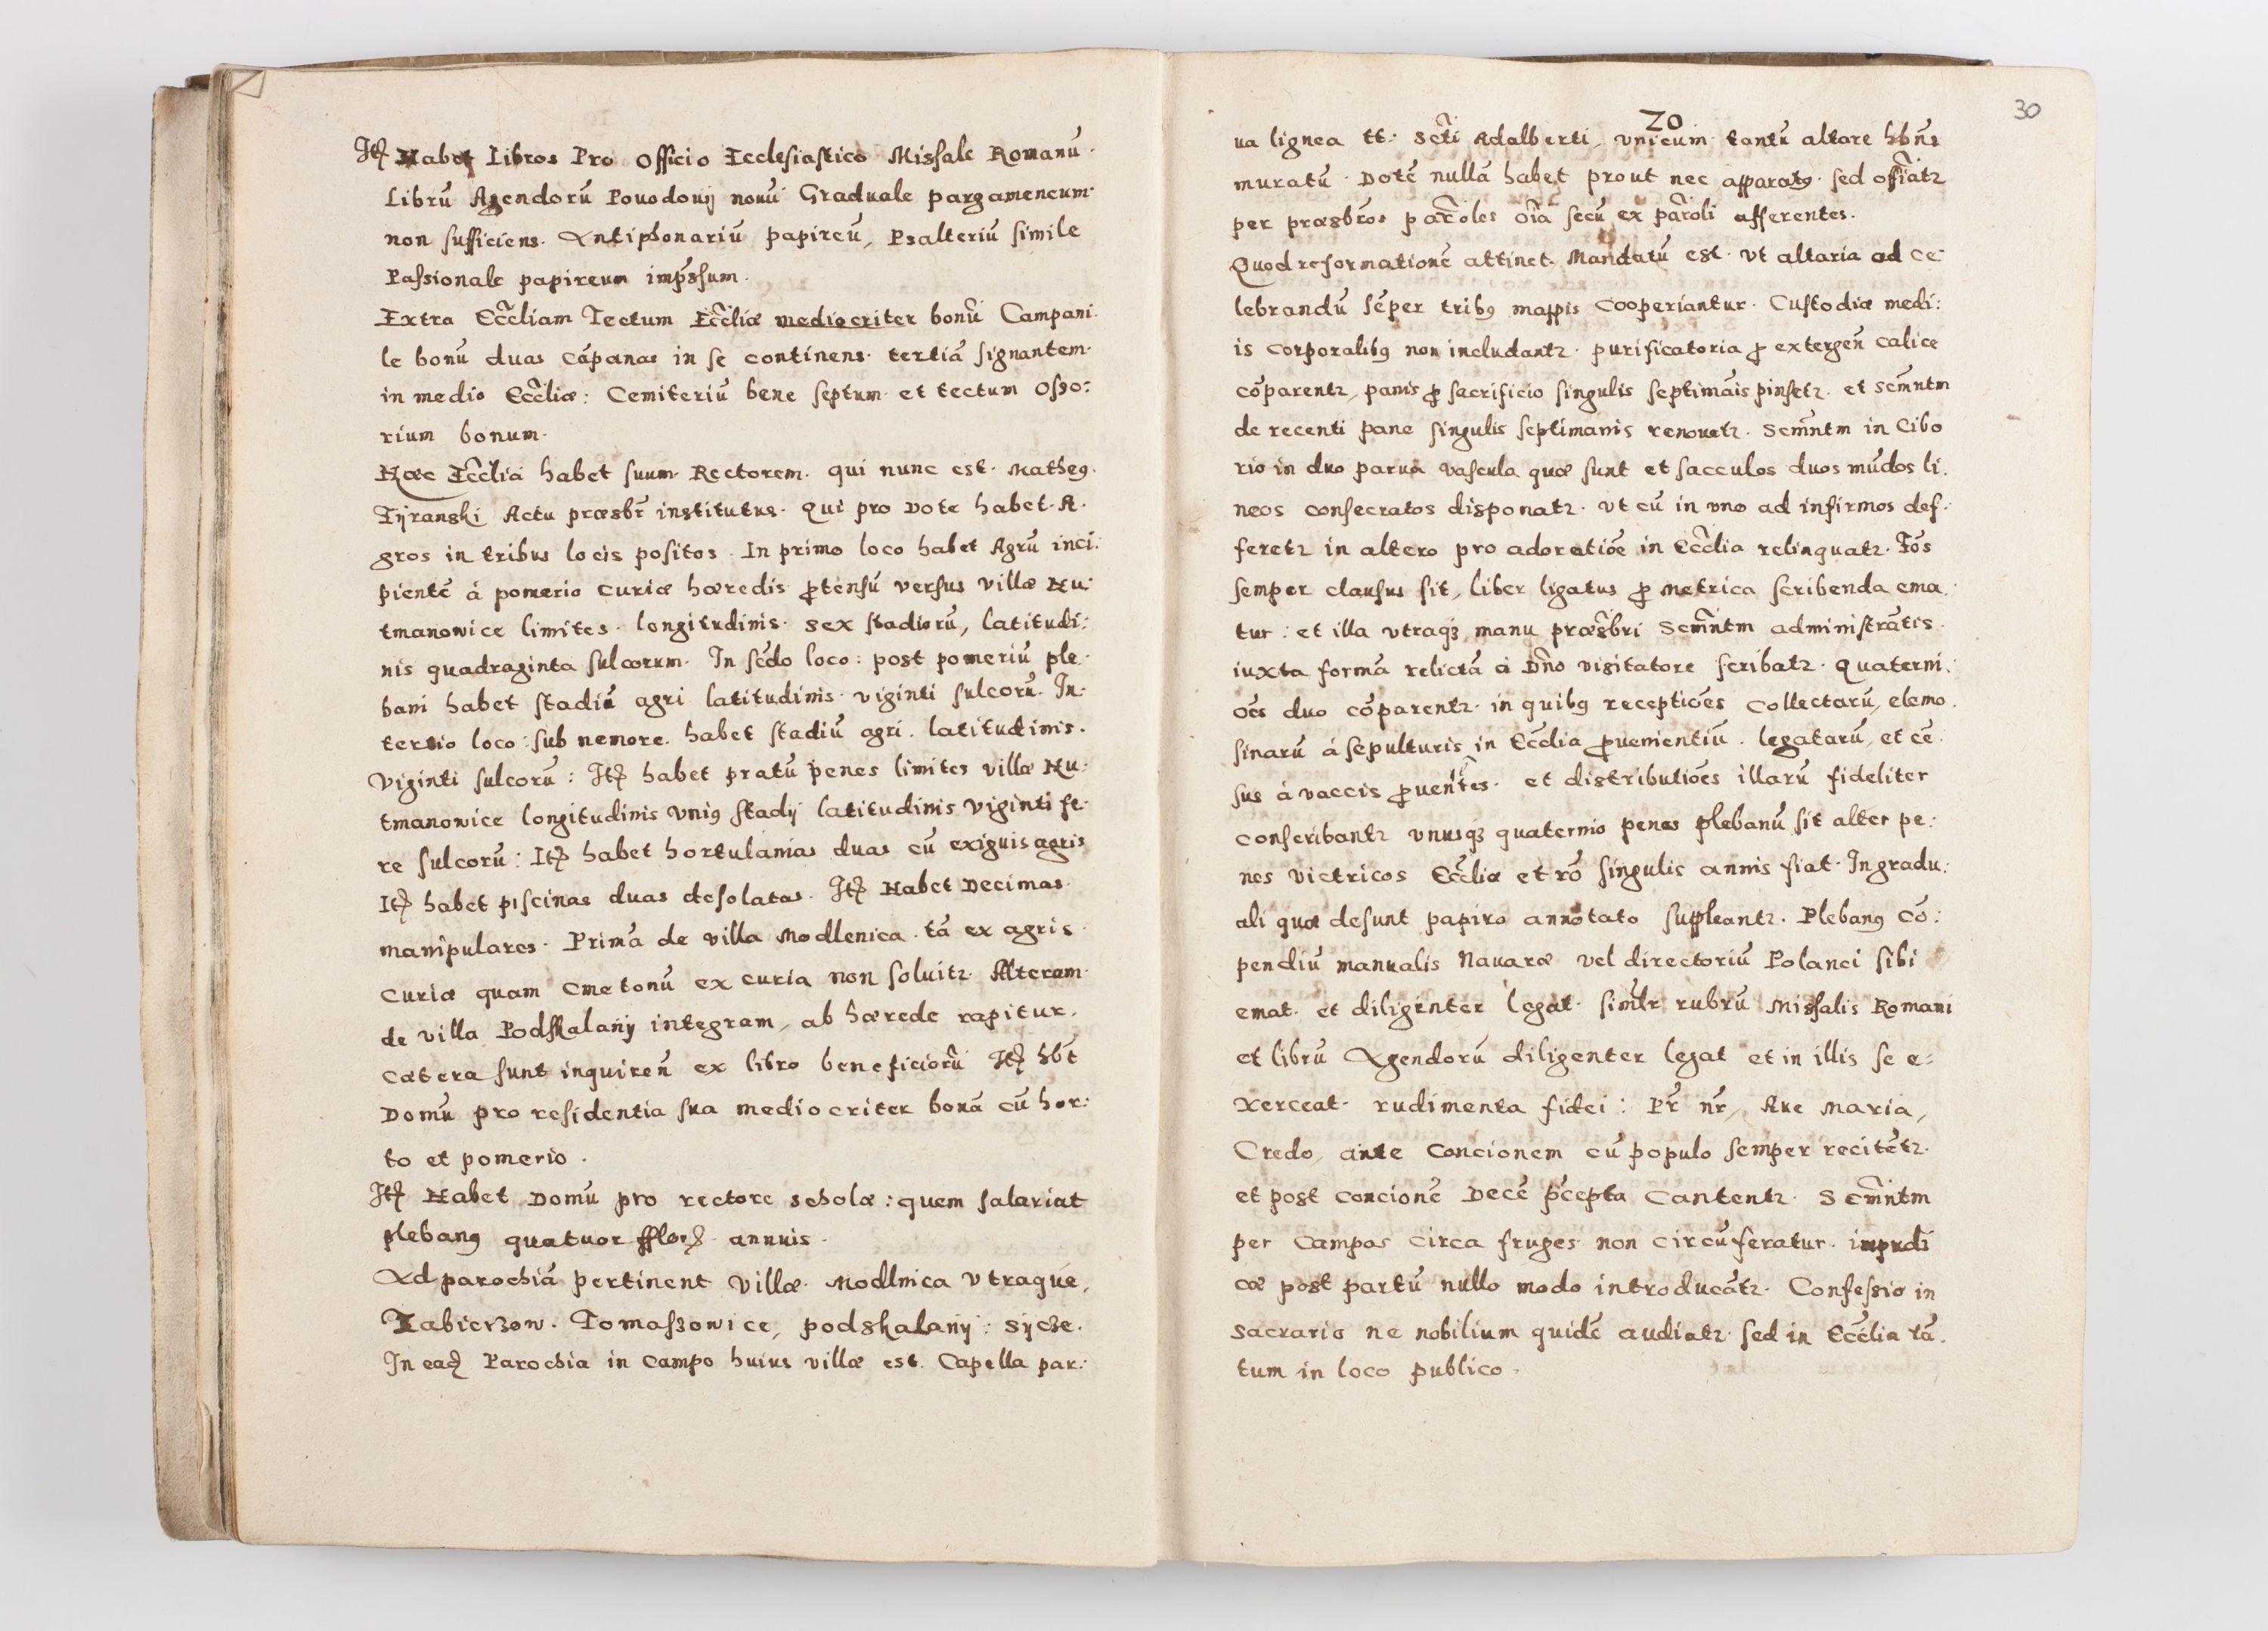 Itꝫ Habet Libros Pro Officio Ecclesiastico Missale Romanū
Librū Agendorū Povodovij novū Graduale pargameneum
non sufficiens. Antiphonariū papireū, Psalteriū simile
Passionale papireum imp̄ssum.
Extra Eccl̃iam Tectum Eccl̃iæ mediocriter bonū Campani-
le bonū duas cāpanas in se continens. tertiā signantem
in medio Eccl̃iæ: Cemiteriū bene septum et tectum Osso:
rium bonum.
Hæc Eccl̃ia habet suum Rectorem. qui nunc est. Matheꝰ
Tÿranski Actu præsbr̄ institutus. Qui pro Dote habet. A.
gros in tribus locis positos. In primo loco habet Agrū inci:
pientē à pomerio Curiæ hæredis ꝓtensū versus villæ Hu:
tmanowice limites. longitudinis. sex stadiorū, latitudi:
nis quadraginta sulcorum. In sc̄do loco: post pomeriū ple
bani habet stadiū agri latitudinis viginti sulcorū. In:
tertio loco: sub nemore. habet stadiū agri. latitudinis.
Viginti sulcorū: Itꝫ habet pratū penes limites villæ Hu:
tmanowice longitudinis vniꝰ stadij latitudinis viginti fe:
re sulcorū: Itꝫ habet hortulanias duas cū exiguis agris
Itꝫ habet piscinas duas desolatas. Itꝫ Habet Decimas
manipulares. Primā de villa Modlenica. tā ex agris
Curiæ quam Cmetonū ex curia non soluitꝛ. Alteram
de villa Podskalanÿ integram, ab hærede rapitur.
Cætera sunt inquiren̄ ex libro beneficiorū Itꝫ hb̄t
Domū pro residentia sua mediocriter bonā cū hor:
to et pomerio.
Itꝫ Habet Domū pro rectore scholæ: quem salariat
plebanꝰ quatuor fflorꝫ annuis.
Ad parochiā pertinent Villæ. Modlnica vtraque,
Zabierzow. Tomaszowice, podskalanÿ: Sÿcze.
In eadꝫ Parochia in Campo huius villæ est. Capella par:
30
ZO
ua lignea tt. Sc̄ti Adalberti, vnicum tantū altare hb̄ns
muratū. Dotē nullā habet prout nec apparatꝰ. sed offiatꝛ
per præsbr̄os par̄oles oīa secū ex par̄oli afferentes.
Quod reformationē attinet. Mandatū est. Vt altaria ad ce:
lebrandū sēper tribꝰ mappis cooperiantur. Custodiæ medi:
is corporalibꝰ non includantꝛ. purificatoria ꝓ extergen̄ calice
cōparentꝛ, panis ꝓ sacrificio singulis septimāis pinsetꝛ. et scm̄ntm
de recenti pane singulis septimanis renouetꝛ. Scm̄ntm in Cibo
rio in duo parua vascula quæ sunt et sacculos duos mūdos li.
neos consecratos disponatꝛ. vt cū in vno ad infirmos def.
feretꝛ in altero pro adoratiōe in Eccl̃ia relinquatꝛ. Fōs
semper clausus sit, liber ligatus ꝓ metrica scribenda ema.
tur: et illa vtraqꝫ manu præsb̄ri Scm̄ntm administrātis.
iuxta formā relictā à Dn̄o visitatore scribatꝛ. Quaterni.
ōēs duo cōparentꝛ. in quibꝰ receptiōes collectarū, elemo.
sinarū à sepulturis in Eccl̃ia ꝓuenientiū. legatarū, et cē
sus à vaccis ꝓuentes. et distributiōes illarū fideliter
conscribantꝛ vnusqꝫ quaternio penes plebanū sit alter pe:
nes victricos Eccl̃iæ et rō singulis annis fiat. In gradu:
ali quæ desunt papiro annotato suppleantꝛ. Plebanꝰ cō:
pendiū manualis Nauaræ vel directoriū Polanci sibi
emat. et diligenter legat. simīlr rubrū Missalis Romani
et librū Agendorū diligenter legat et in illis se e=
xerceat. rudimenta fidei: Pr̄ nr̄, Aue Maria,
Credo, ante concionem cū populo semper recitētꝛ.
et post concionē Decē p̄cepta Cantentꝛ. Scm̄ntm
per Campos circa fruges non circūferatur. impudi
cæ post partū nullo modo introducātꝛ. Confessio in
sacrario ne nobilium quidē audiatꝛ. sed in Eccl̃ia tā.
tum in loco publico.